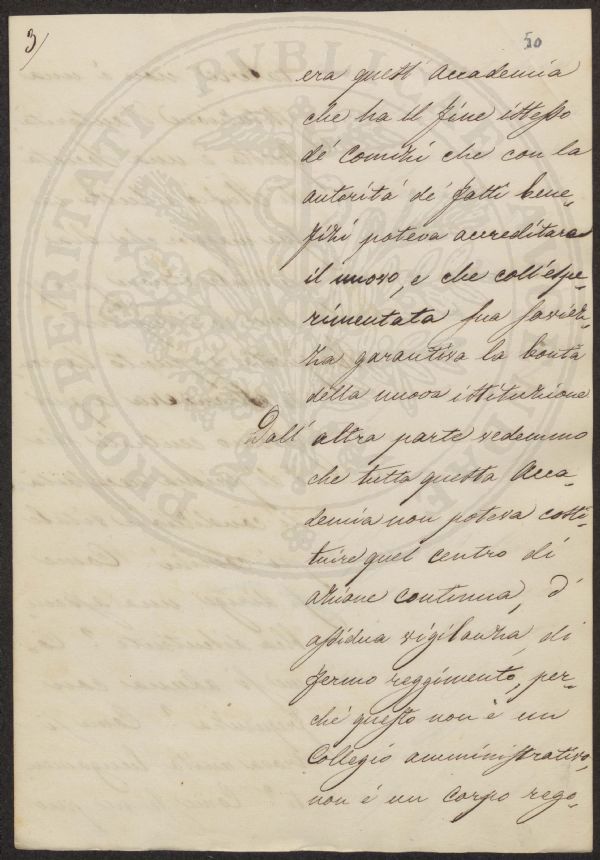 3)
50
era quest' Accademia
che ha il fine istesso
de' Comizi che con la
autorità de' fatti bene-
fizi poteva accreditare
il nuovo, e che coll'espe-
rimentata sua savien-
za garantiva la bontà
della nuova istituzione
Dall' altra parte vedemmo
che tutta questa Acca-
demia non poteva costi-
tuire quel centro di
azione continua, d'
assidua vigilanza, di
fermo reggimento, per-
ché questo non è un
Collegio amministrativo,
non è un corpo rego-
PROSPERITATI PVBLICAE